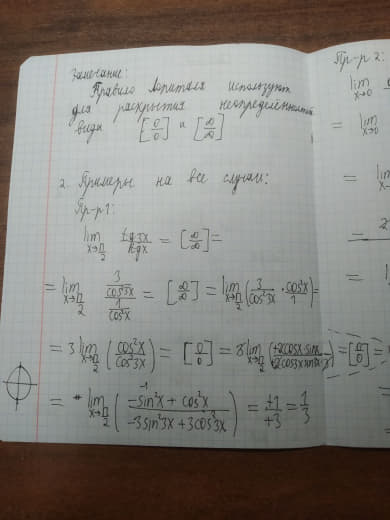 Замечание:
Правило Лопиталя используют
для раскрытия неопределённостей
вида [0/0] и [∞/∞]
2. Примеры на все случаи:
Пр-р 1:
lim x→π/2 tg3x/tgx = [∞/∞] =
= lim x→π/2 (3/cos²3x)/(1/cos²x) = [∞/∞] = lim x→π/2 (3/cos²3x · cos²x/1) =
= 3 lim x→π/2 (cos²x/cos²3x) = [0/0] = 3 lim x→π/2 = [0/0] =
= lim x→π/2 ((-sin²x + cos²x)/(-3sin²3x + 3cos²3x)) = +1/+3 = 1/3
Пр-р 2:
lim x→0
= lim x→0
= lim
=
=